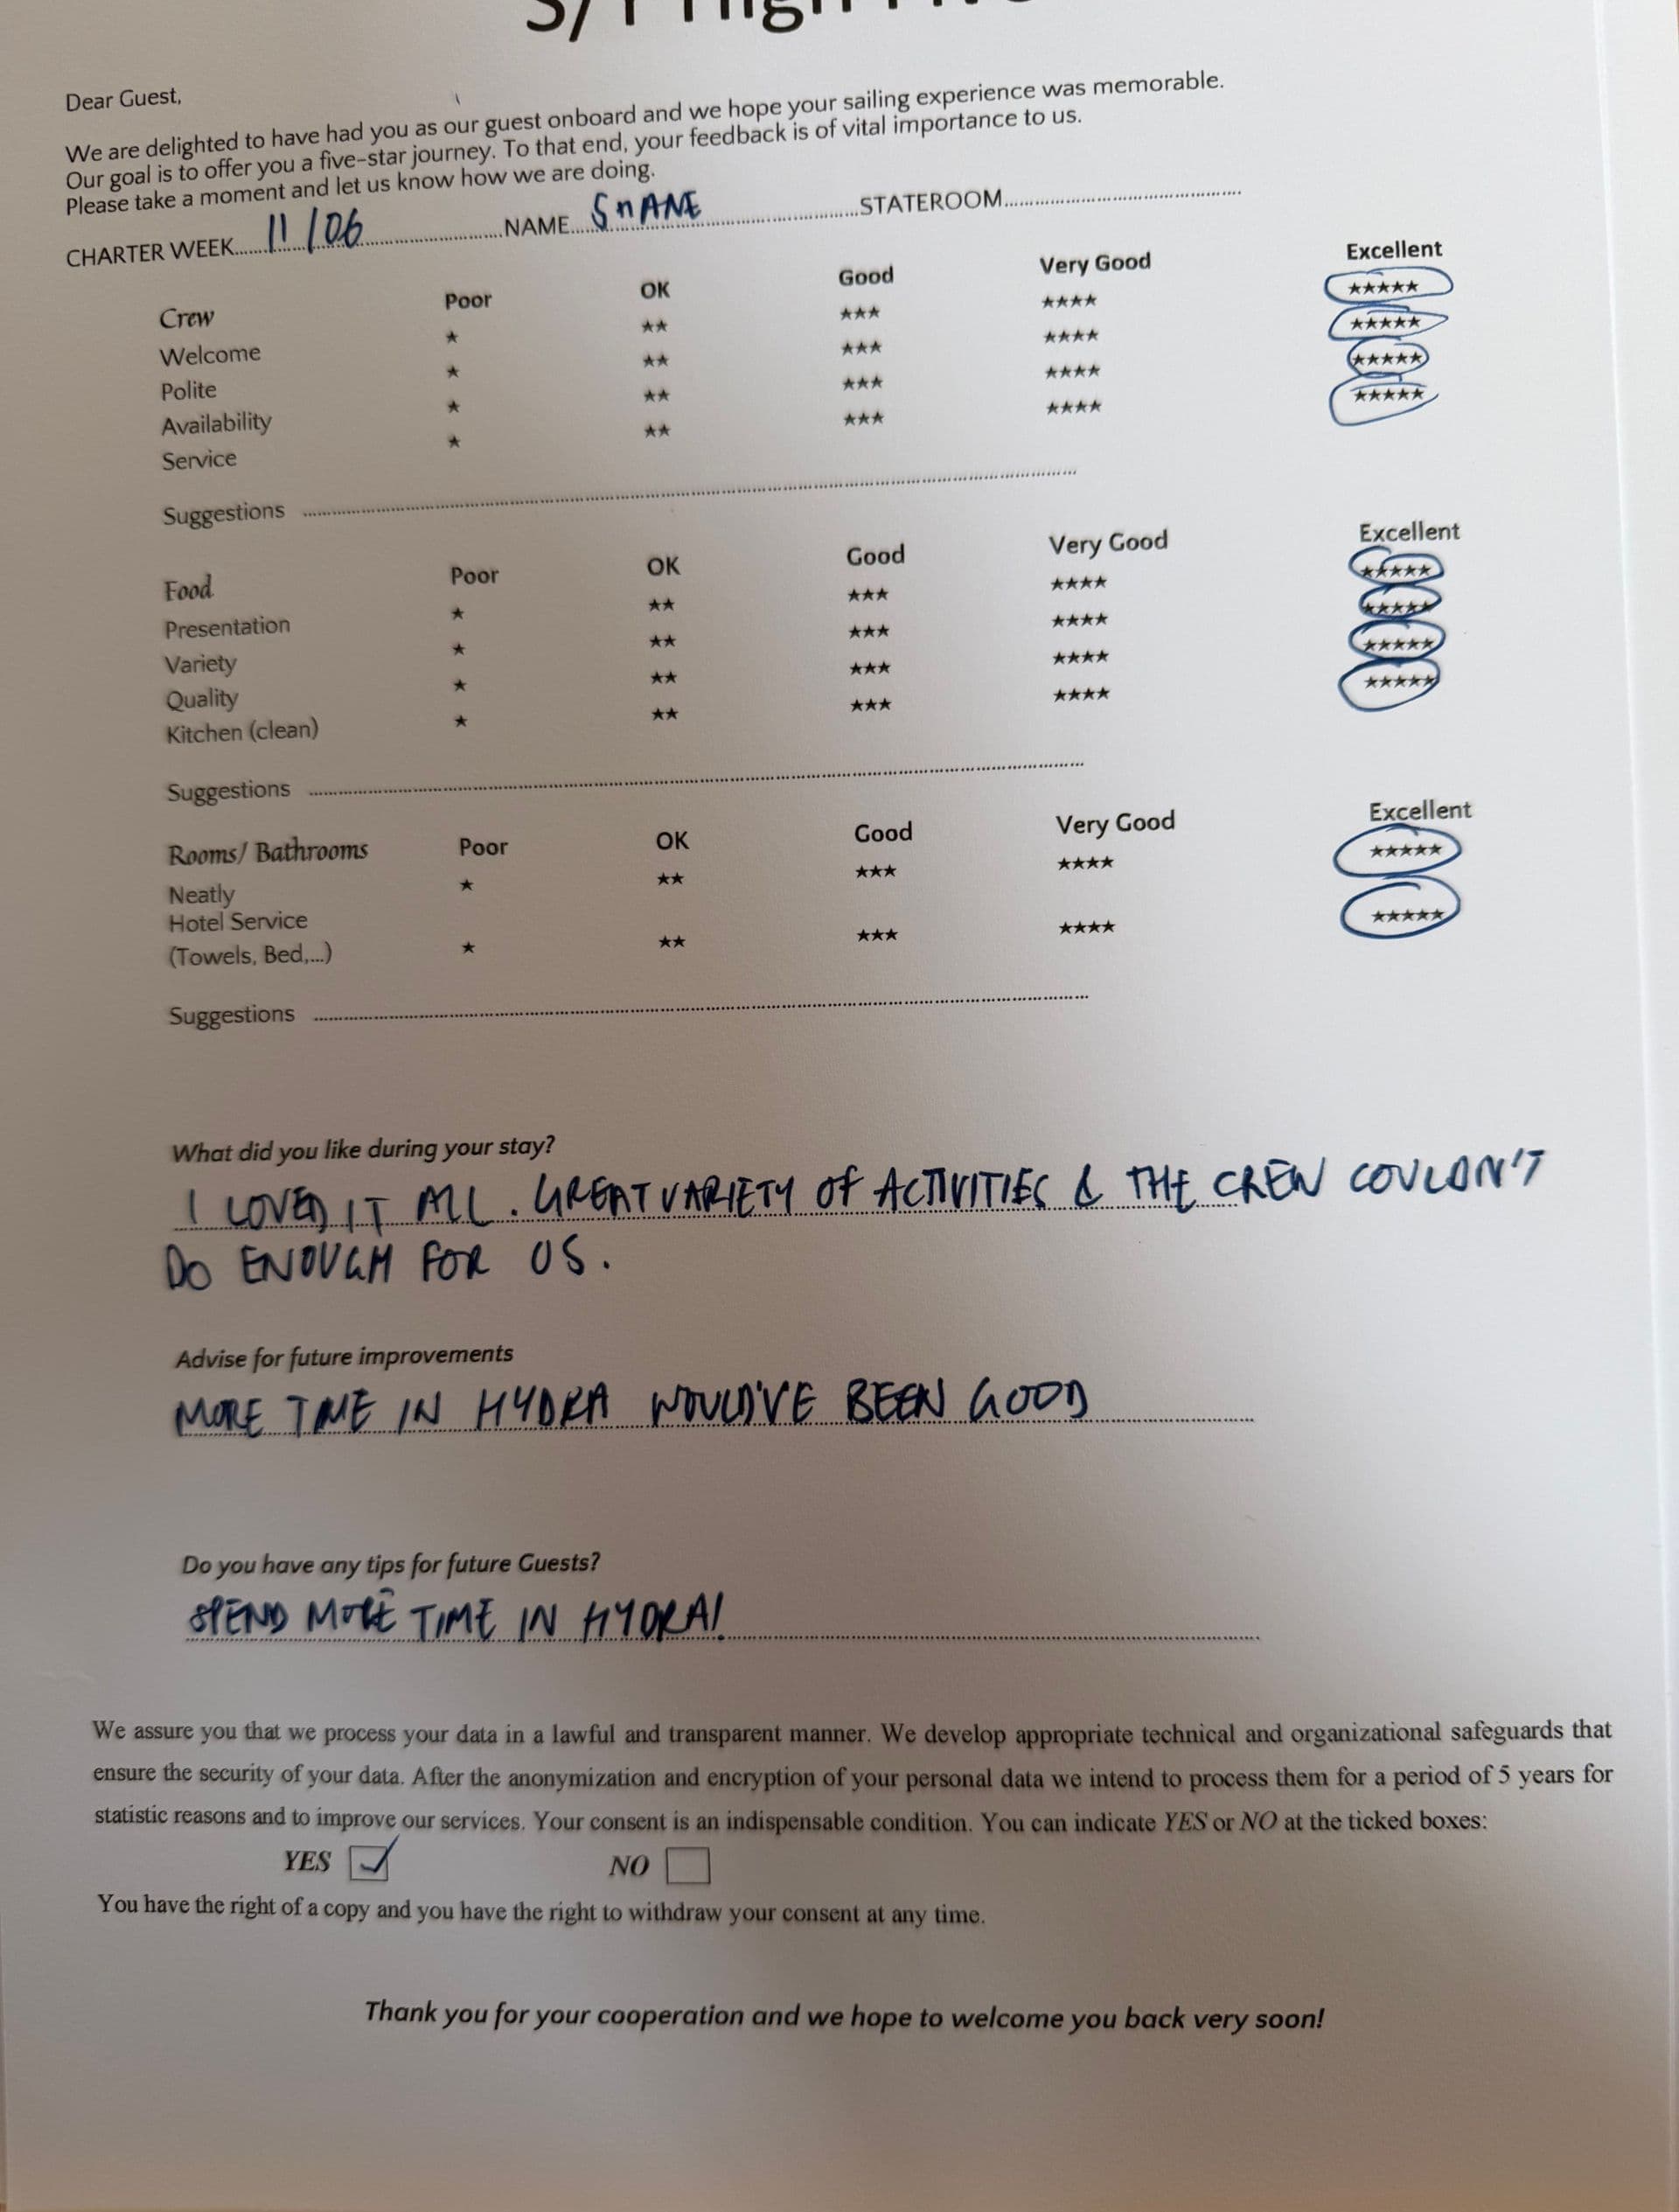 S/Y High
Dear Guest,
We are delighted to have had you as our guest onboard and we hope your sailing experience was memorable.
Our goal is to offer you a five-star journey. To that end, your feedback is of vital importance to us.
Please take a moment and let us know how we are doing.
CHARTER WEEK 11/06 NAME SHANE STATEROOM
Crew Poor OK Good Very Good Excellent
Welcome ★ ★★ ★★★ ★★★★ ★★★★★
Polite ★ ★★ ★★★ ★★★★ ★★★★★
Availability ★ ★★ ★★★ ★★★★ ★★★★★
Service ★ ★★ ★★★ ★★★★ ★★★★★
Suggestions
Food Poor OK Good Very Good Excellent
Presentation ★ ★★ ★★★ ★★★★ ★★★★★
Variety ★ ★★ ★★★ ★★★★ ★★★★★
Quality ★ ★★ ★★★ ★★★★ ★★★★★
Kitchen (clean) ★ ★★ ★★★ ★★★★ ★★★★★
Suggestions
Rooms/ Bathrooms Poor OK Good Very Good Excellent
Neatly ★ ★★ ★★★ ★★★★ ★★★★★
Hotel Service
(Towels, Bed,...) ★ ★★ ★★★ ★★★★ ★★★★★
Suggestions
What did you like during your stay?
I LOVED IT ALL. GREAT VARIETY OF ACTIVITIES & THE CREW COULDN'T
DO ENOUGH FOR US.
Advise for future improvements
MORE TIME IN HYDRA WOULD'VE BEEN GOOD
Do you have any tips for future Guests?
SPEND MORE TIME IN HYDRA!
We assure you that we process your data in a lawful and transparent manner. We develop appropriate technical and organizational safeguards that
ensure the security of your data. After the anonymization and encryption of your personal data we intend to process them for a period of 5 years for
statistic reasons and to improve our services. Your consent is an indispensable condition. You can indicate YES or NO at the ticked boxes:
YES ☑ NO ☐
You have the right of a copy and you have the right to withdraw your consent at any time.
Thank you for your cooperation and we hope to welcome you back very soon!